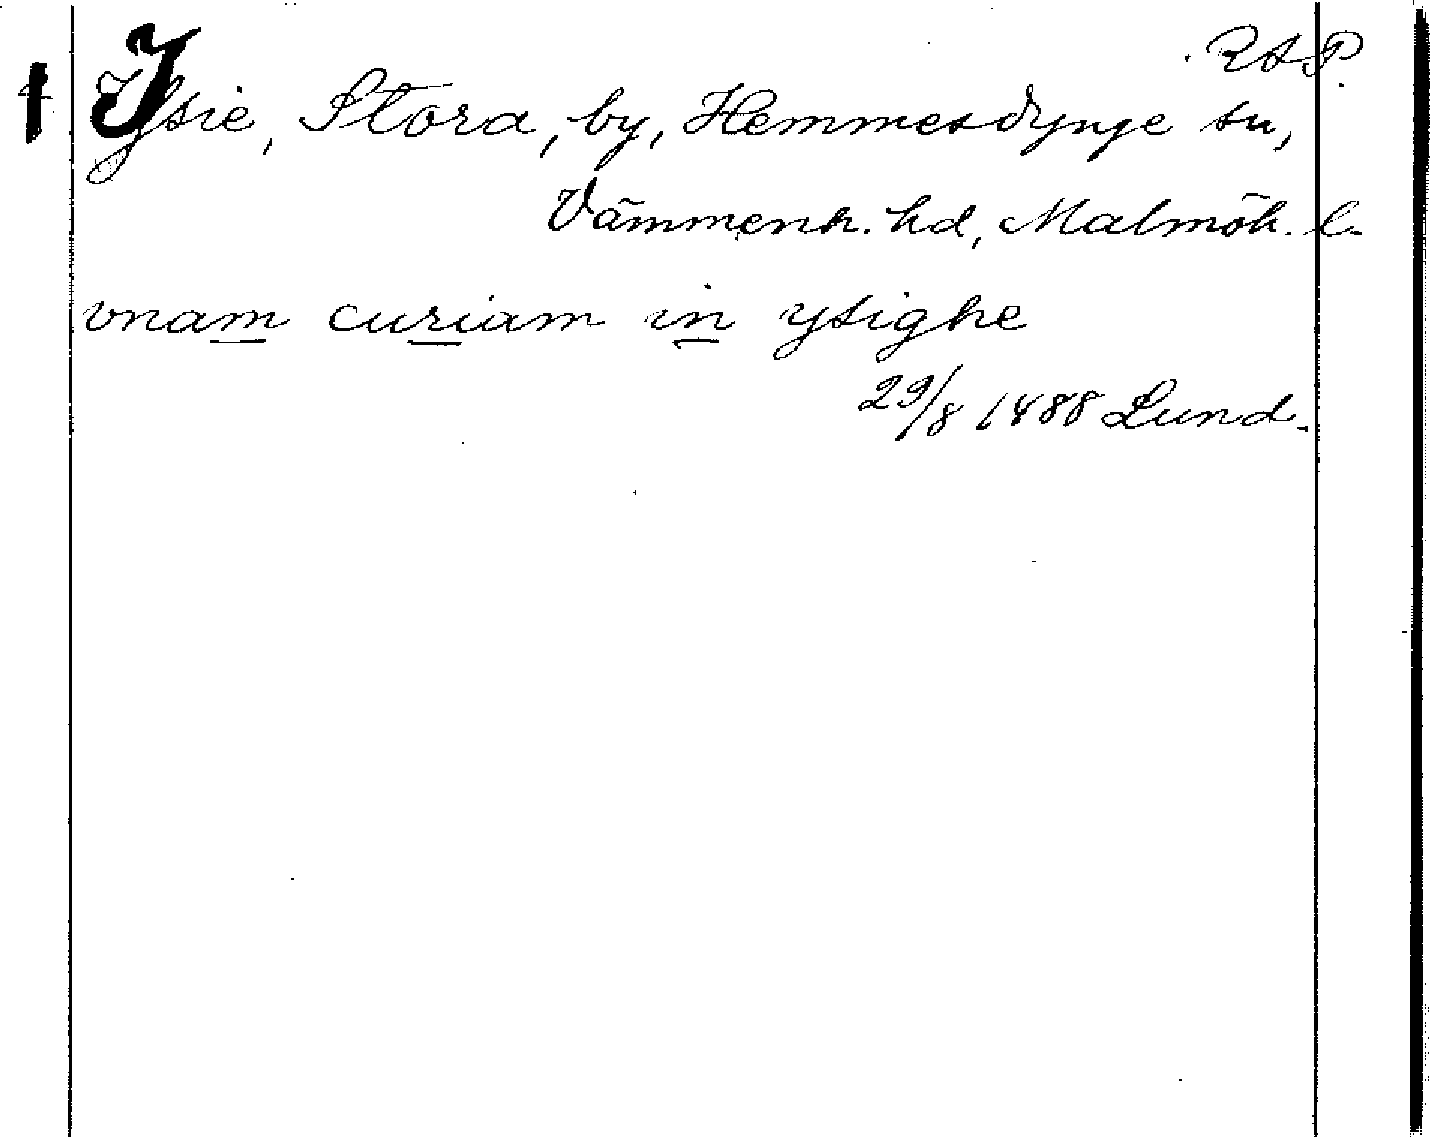 RAP.
Isie, Stora, by, Hemmesdynge sn,
Vämmenh. hd, Malmöh. l.
vnam curiam in ysighe
29/8 1488 Lund.